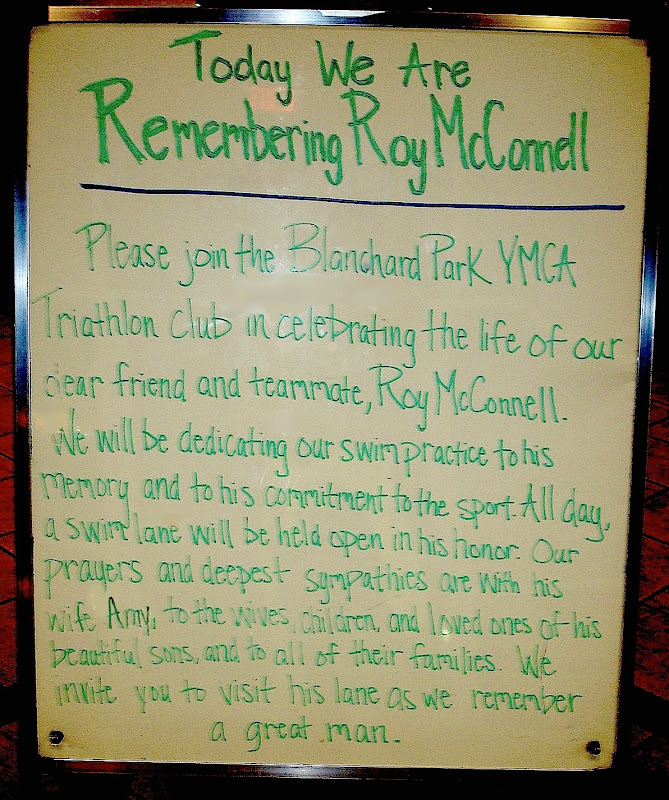 Today We Are
Remembering Roy McConnell
Please join the Blanchard Park YMCA
Triathlon Club in celebrating the life of our
dear friend and teammate, Roy McConnell.
We will be dedicating our swim practice to his
memory and to his commitment to the sport. All day,
a swim lane will be held open in his honor. Our
prayers and deepest sympathies are with his
wife Amy, to the wives, children, and loved ones of his
beautiful sons, and to all of their families. We
invite you to visit his lane as we remember
a great man.